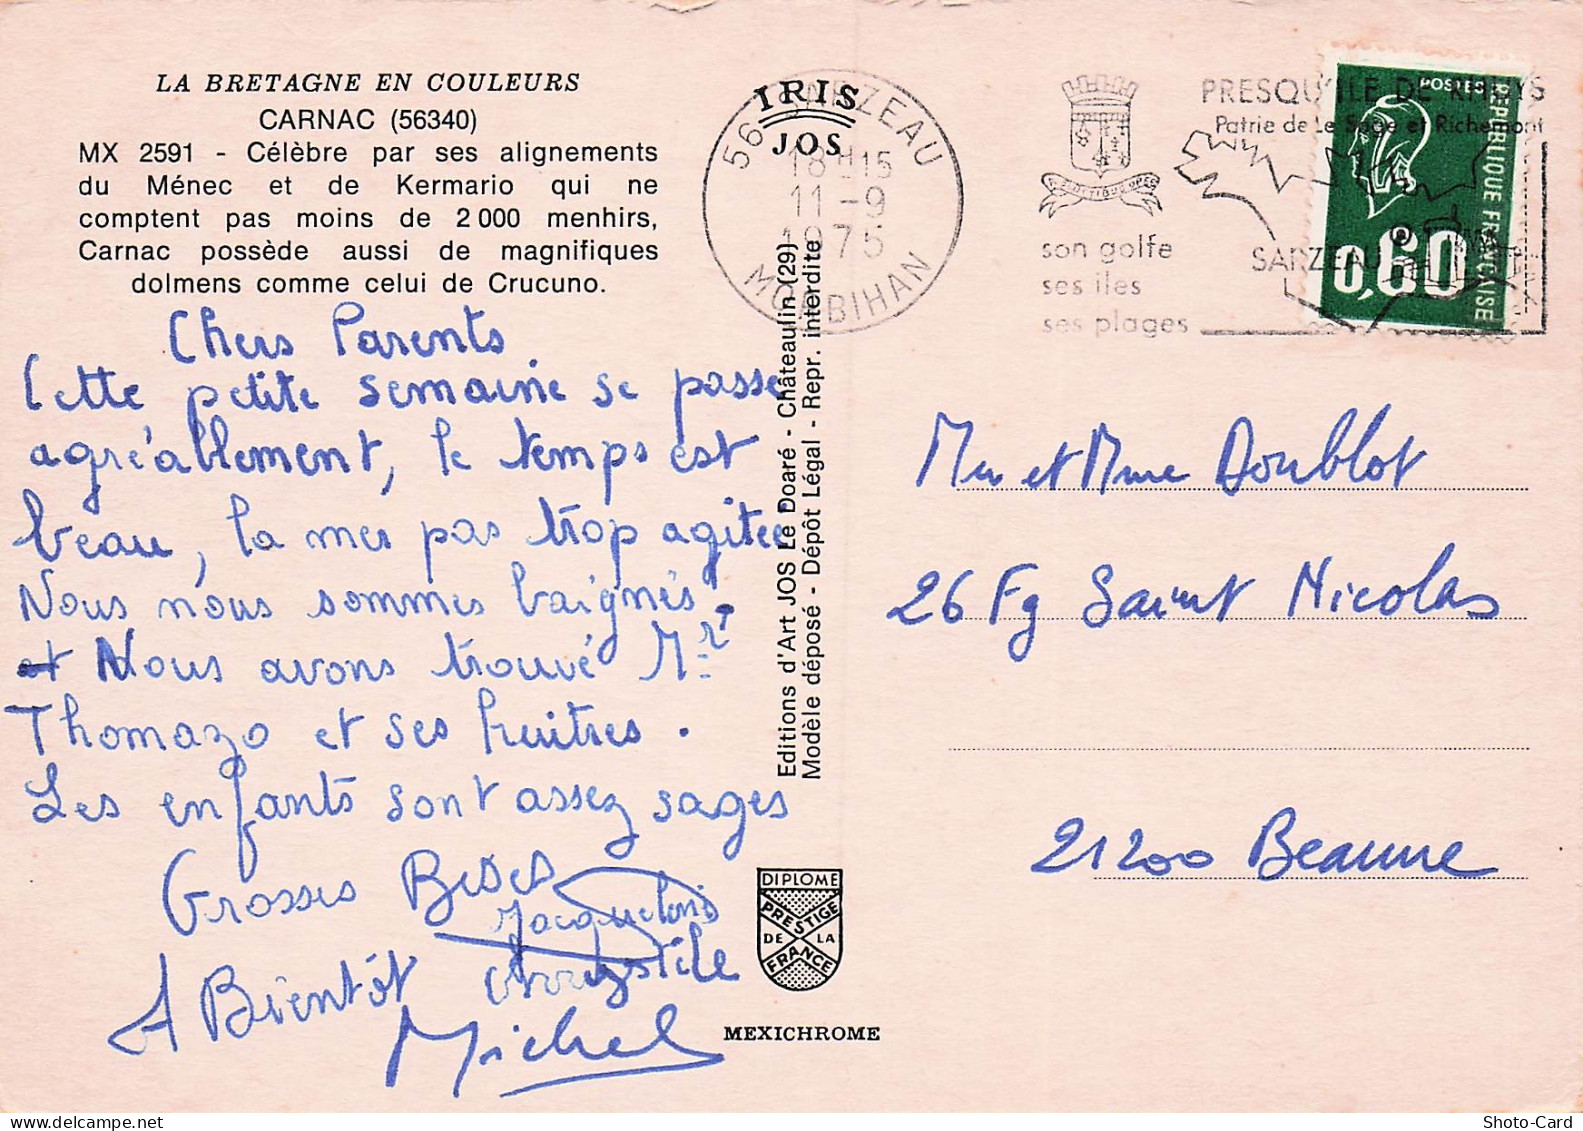 LA BRETAGNE EN COULEURS
CARNAC (56340)
MX 2591 - Célèbre par ses alignements
du Ménec et de Kermario qui ne
comptent pas moins de 2 000 menhirs,
Carnac possède aussi de magnifiques
dolmens comme celui de Crucuno.
Chers Parents
Cette petite semaine se passe
agréablement, le temps est
beau, la mer pas trop agitée
Nous nous sommes baignés
et Nous avons trouvé Mr
Thomazo et ses huitres.
Les enfants sont assez sages
Grosses Bises
A Bientôt
Michel
IRIS
JOS
56 SARZEAU
18H15
11-9
1975
MORBIHAN
son golfe
ses iles
ses plages
PRESQU'ILE DE RHUYS
Patrie de Le Sage et Richemont
SARZEAU
POSTES
0,60
REPUBLIQUE FRANÇAISE
Editions d'Art JOS Le Doaré - Châteaulin (29)
Modèle déposé - Dépôt Légal - Repr. interdite
Mr et Mme Doublot
26 Fg Saint Nicolas
21200 Beaune
DIPLOME
PRESTIGE
DE LA
FRANCE
MEXICHROME
Shoto-Card